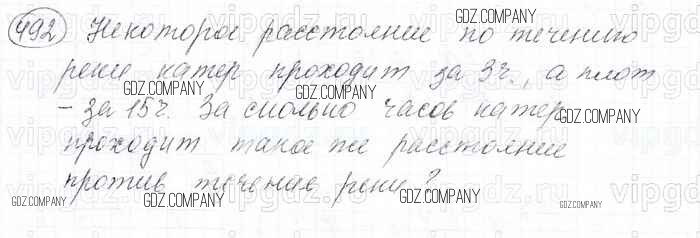 492 Некоторое расстояние по течению
реки катер проходит за 3ч., а плот
– за 15ч. За сколько часов катер
проходит такое же расстояние
против течения реки?
GDZ.COMPANY
GDZ.COMPANY
GDZ.COMPANY
GDZ.COMPANY
GDZ.COMPANY
GDZ.COMPANY
GDZ.COMPANY
GDZ.COMPANY
GDZ.COMPANY